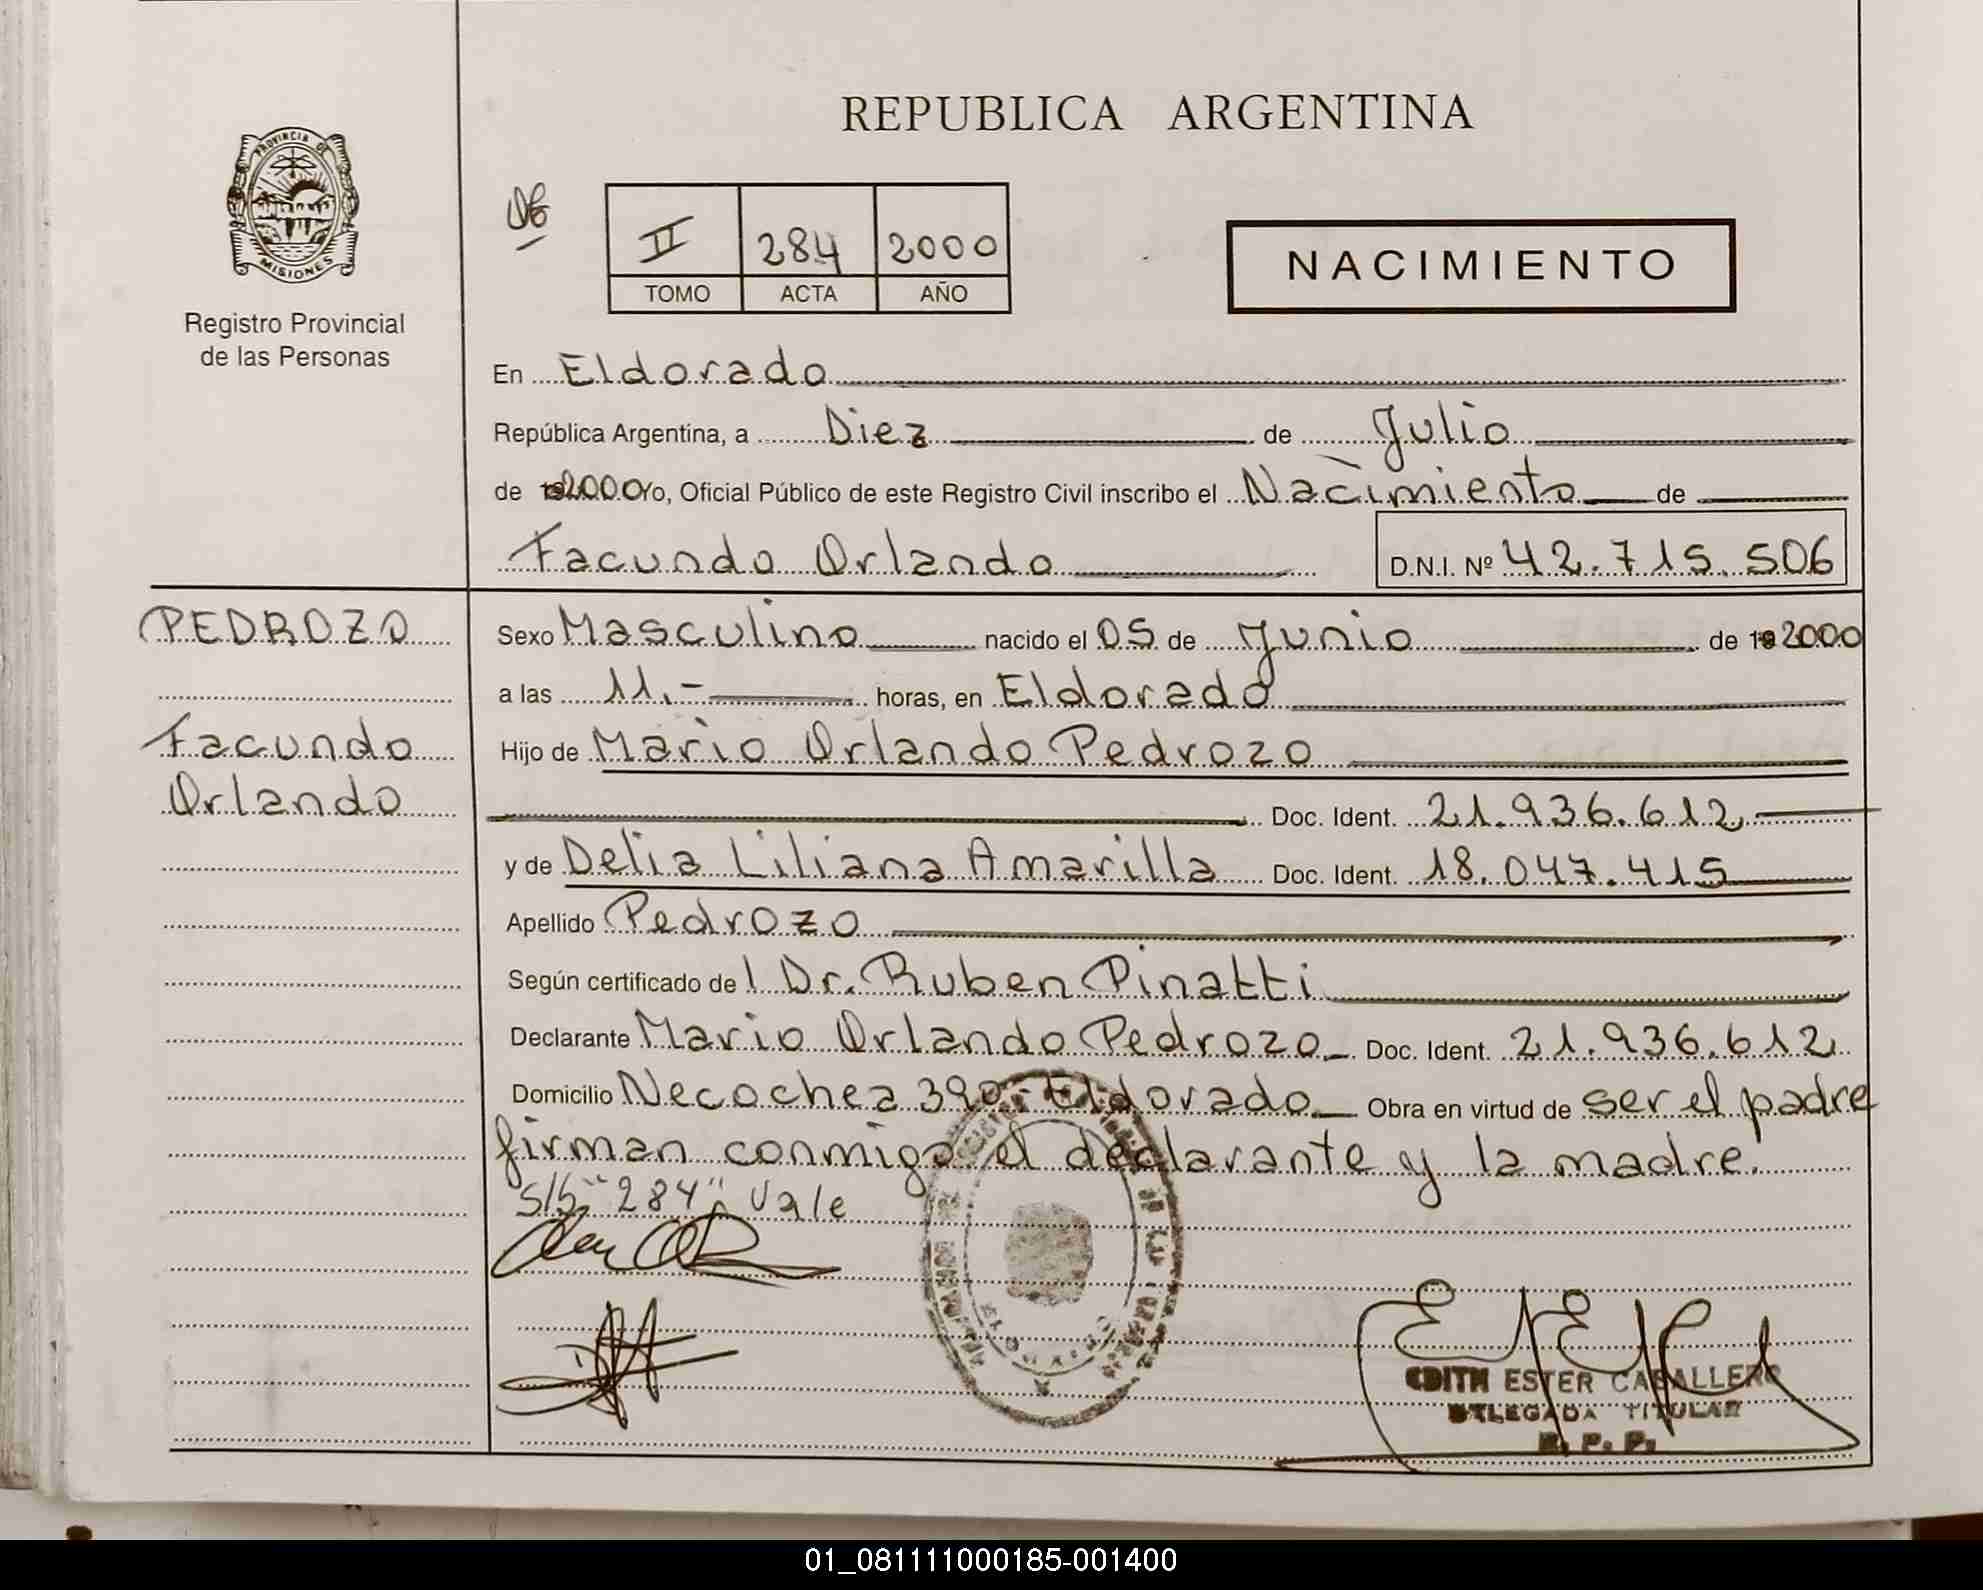 REPUBLICA ARGENTINA
PROVINCIA DE
MISIONES
Registro Provincial
de las Personas
06
II 284 2000
TOMO ACTA AÑO
NACIMIENTO
En Eldorado
República Argentina, a Diez de Julio
de 2000 Yo, Oficial Público de este Registro Civil inscribo el Nacimiento de
Facundo Orlando D.N.I. Nº 42.715.506
PEDROZO
Facundo
Orlando
Sexo Masculino nacido el 05 de Junio de 19 2000
a las 11.- horas, en Eldorado
Hijo de Mario Orlando Pedrozo
Doc. Ident. 21.936.612
y de Delia Liliana Amarilla Doc. Ident. 18.047.415
Apellido Pedrozo
Según certificado del Dr. Ruben Pinatti
Declarante Mario Orlando Pedrozo Doc. Ident. 21.936.612
Domicilio Necochea 390 - Eldorado Obra en virtud de ser el padre
firman conmigo el declarante y la madre.
S/b "284" Vale
EDITH ESTER CABALLERO
DELEGADA TITULAR
R. P. P.
01_081111000185-001400